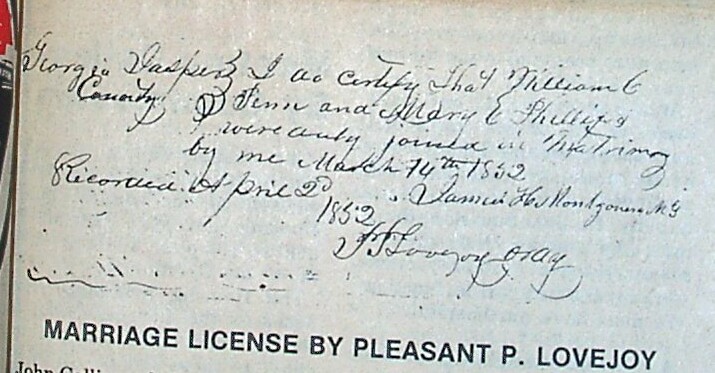 Georgia Jasper } I do certify that William C
County } Penn and Mary C Phillips
were duly joined in Matrimony
by me March 14th 1852
Recorded April 2d James H Montgomery MG
1852
P P Lovejoy Ordy
MARRIAGE LICENSE BY PLEASANT P. LOVEJOY
John